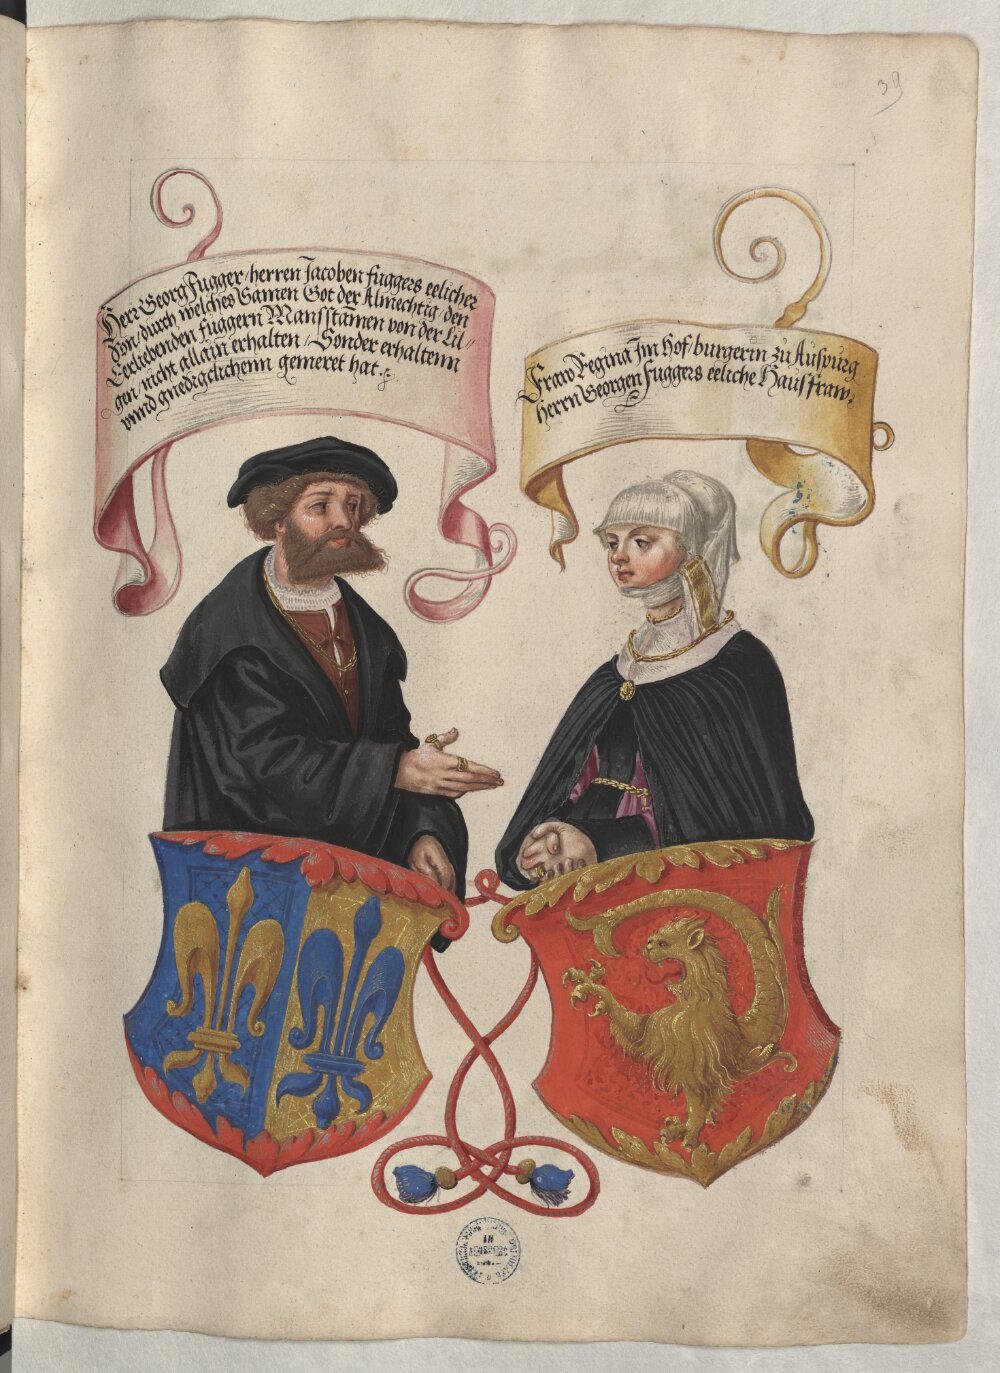 39
Herr Georg Fugger / herren Jacoben fuggers eelicher
Son / durch welches Samen Got der Almechtig / den
Eerliebenden fuggern Mansstamen von der Lil//
gen / nicht allain erhalten / Sonder erhaltenn
vnnd gnedigclichenn gemeret hat.
Fraw Regina Im Hof / burgerin zů Auspurg
herrn Georgen fuggers eeliche Hausfraw.